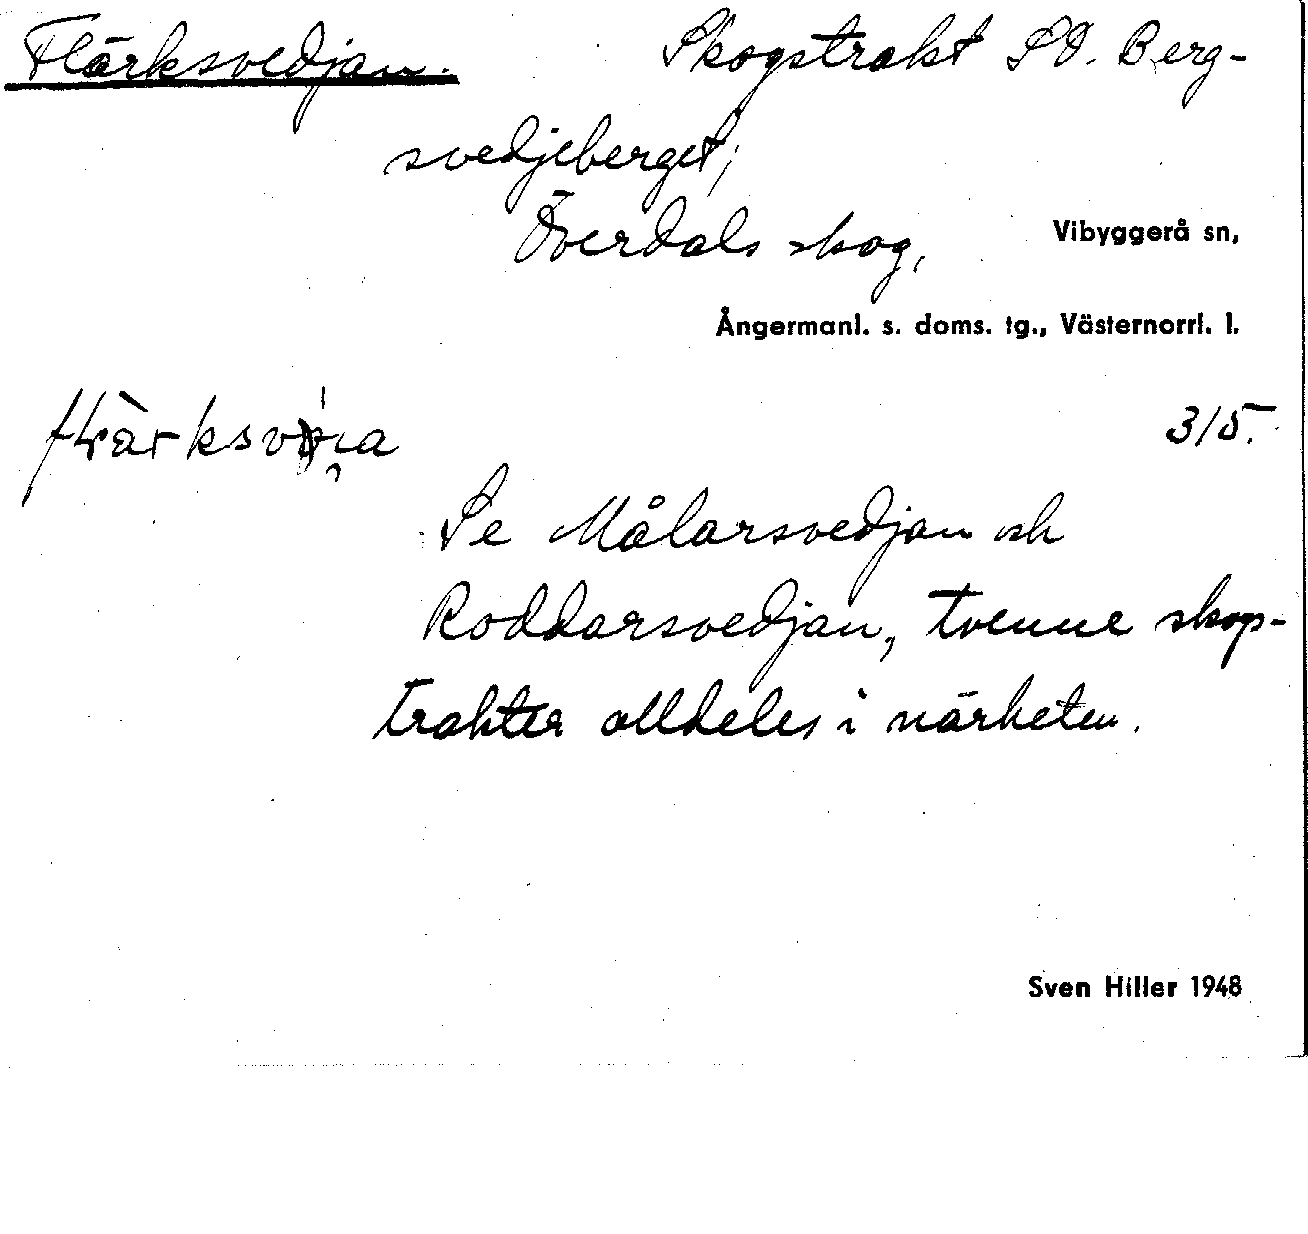 Flärksvedjan. Skogstrakt SO. Berg-
svedjeberget;
Överdals skog, Vibyggerå sn,
Ångermanl. s. doms. tg., Västernorrl. l.
3/5.
Se Målarsvedjan och
Roddarsvedjan, tvenne skogs-
trakter alldeles i närheten.
Sven Hiller 1948